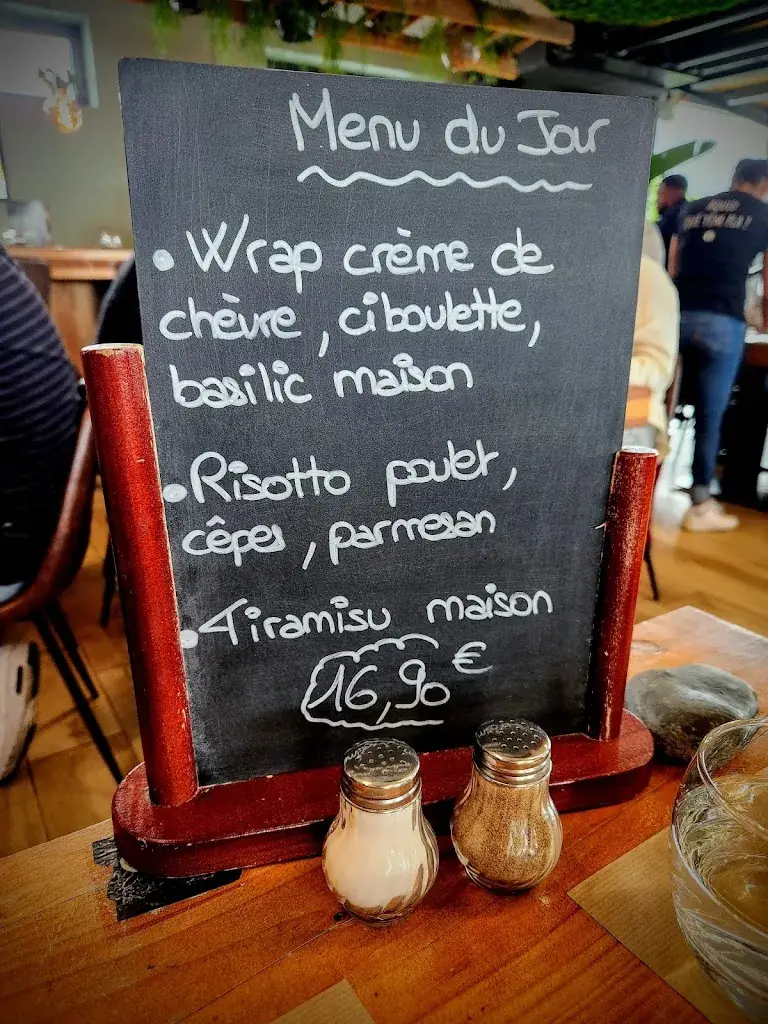 Menu du Jour
• Wrap crème de
chèvre, ciboulette,
basilic maison
• Risotto poulet,
cêpes, parmesan
• Tiramisu maison
16,90 €